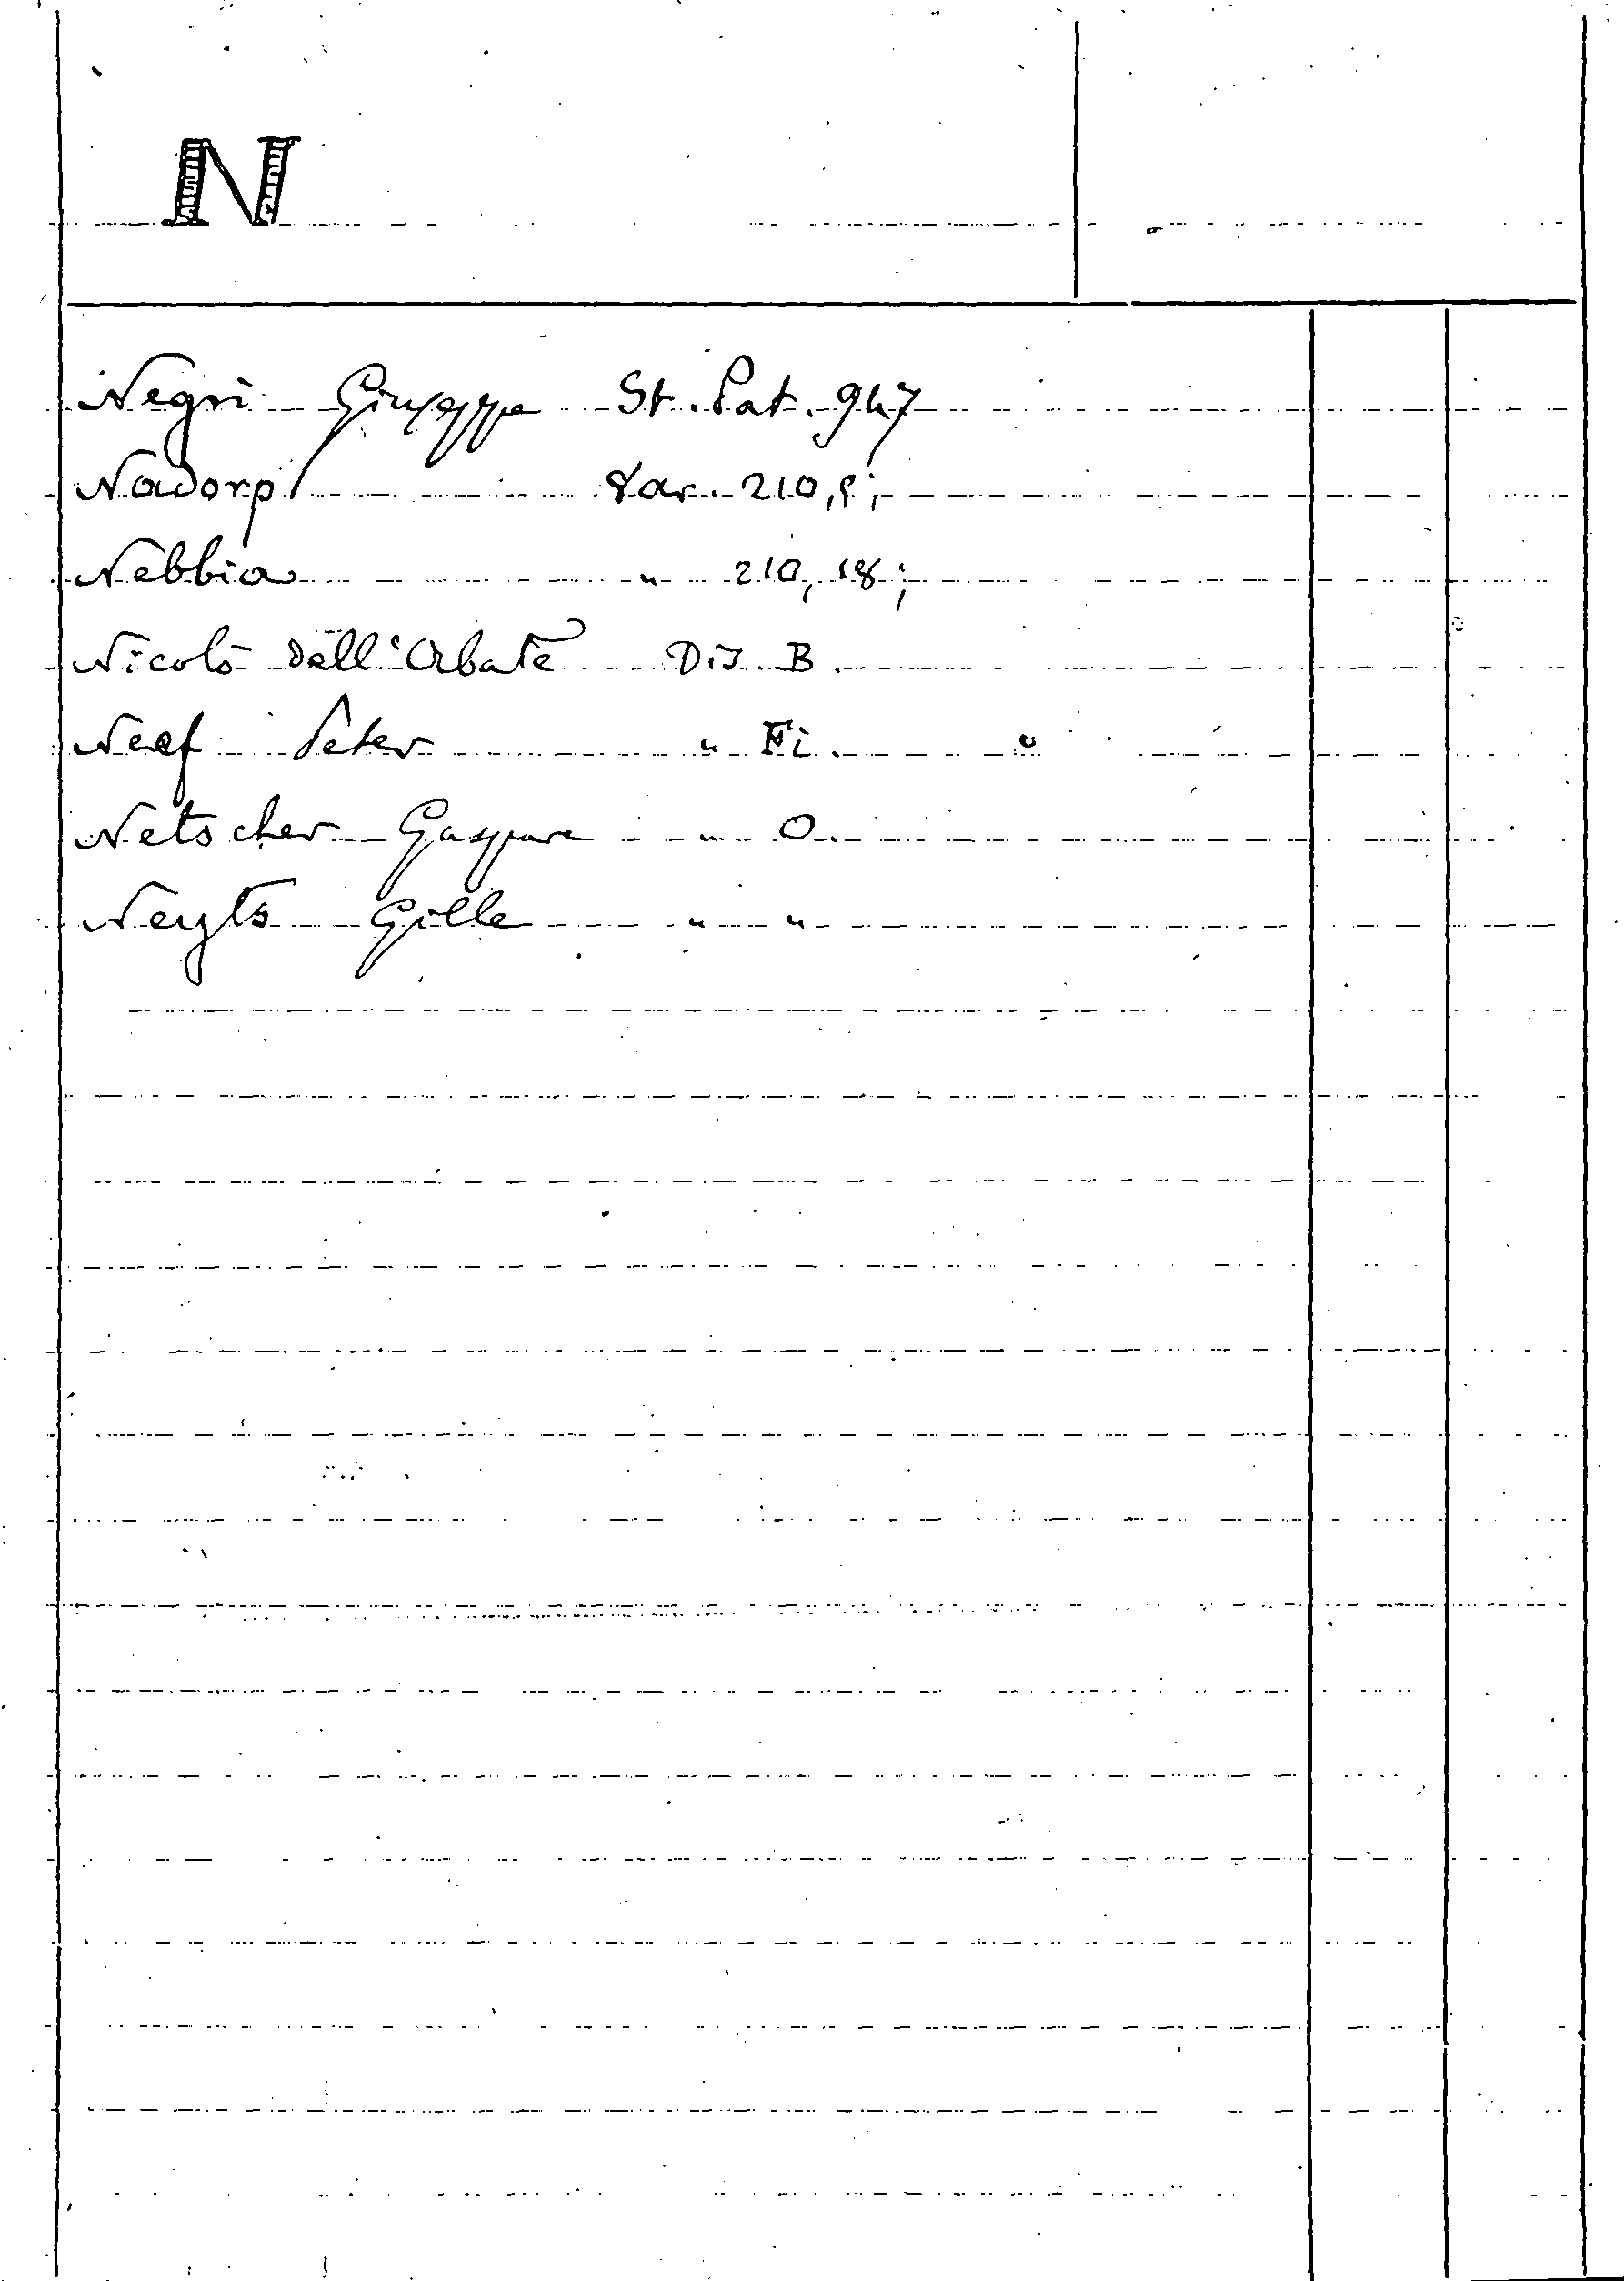 N
Negri Giuseppe St. Pat. 947
Nadorp Var. 210,9;
Nebbia " 210,18;
Nicolò dell'Abate Dis. B.
Neef Peter " Fi. "
Netscher Gaspare " O.
Neyts Gille " "